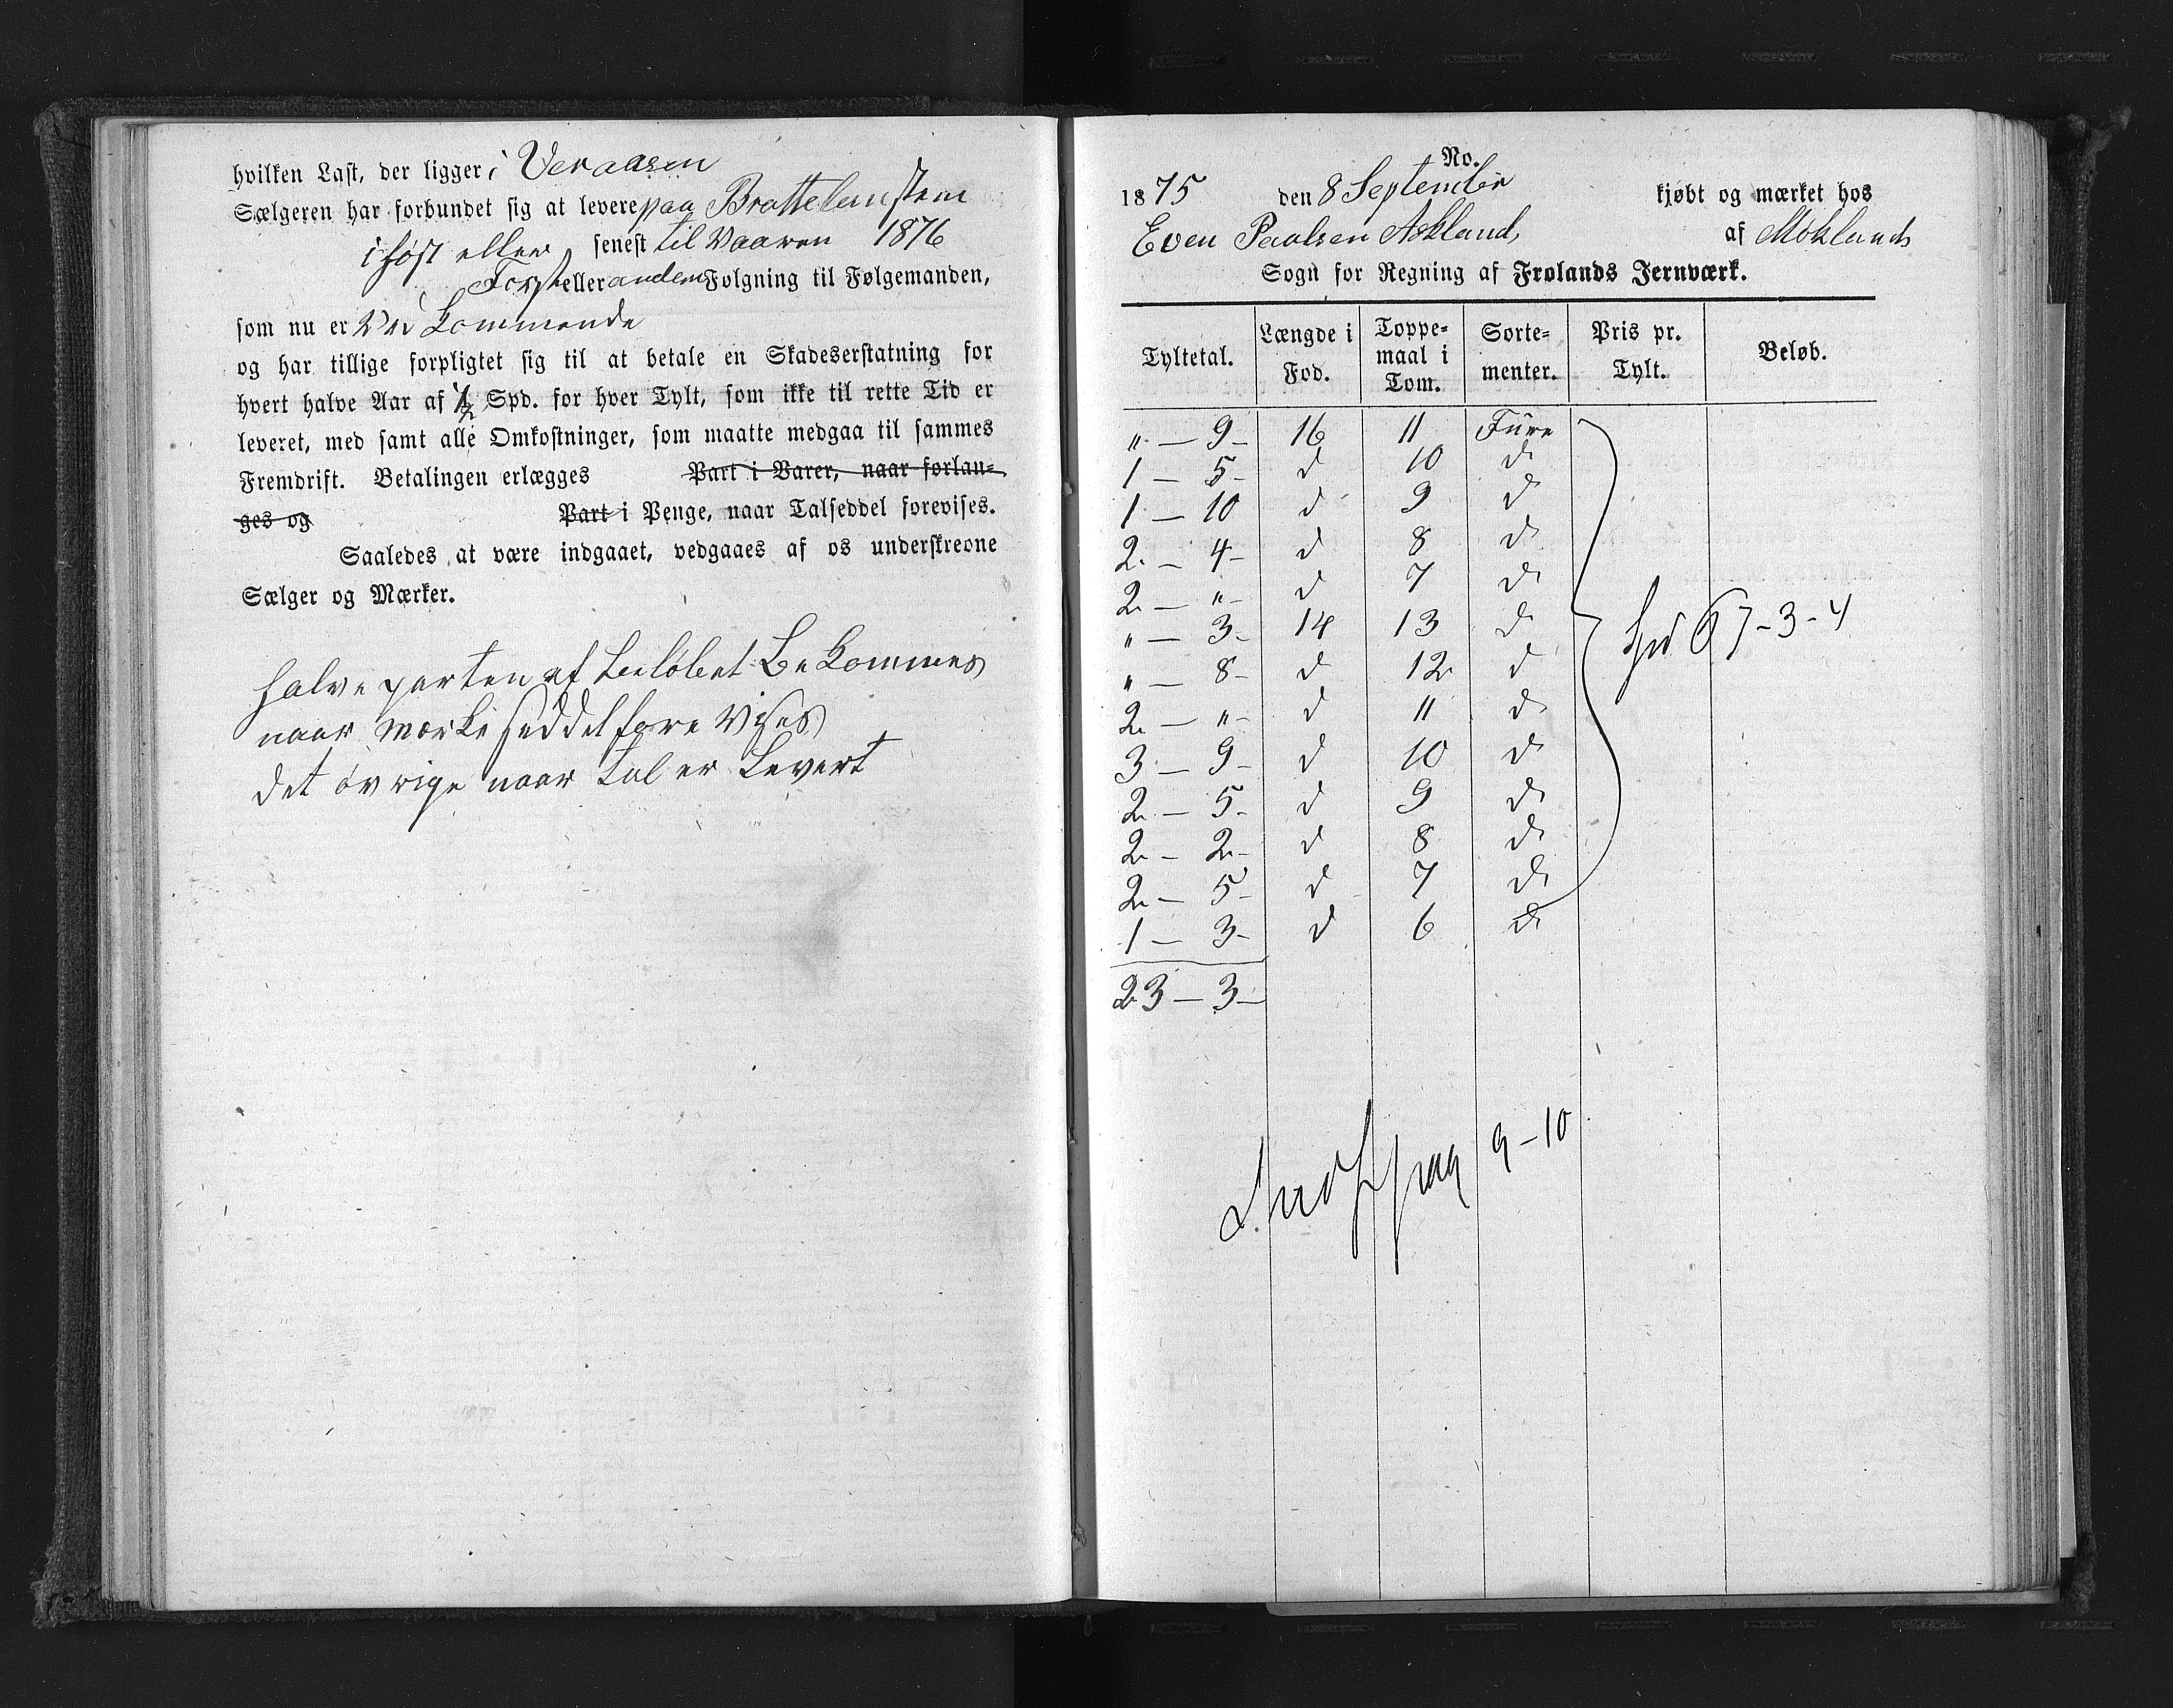 hvilken Last, der ligger i Veraasen
Sælgeren har forbundet sig at levere paa Brattelunstem
i høst eller senest til Vaaren 1876
Først eller anden Følgning til Følgemanden,
som nu er Ved Kommende
og har tillige forpligtet sig til at betale en Skadeserstatning for
hvert halve Aar af 1/2 Spd. for hver Tylt, som ikke til rette Tid er
leveret, med samt alle Omkostninger, som maatte medgaa til sammes
Fremdrift. Betalingen erlægges Part i Varer, naar forlan-
ges og Part i Penge, naar Talseddel forevises.
Saaledes at være indgaaet, vedgaaes af os underskrevne
Sælger og Mærker.
halve parten af beløbet Be Kommes
naar mærke seddel fore Vises
det øvrige naar tal er Levert
No.
1875 den 8 September kjøbt og mærket hos
Even Paulsen Askland, af Moklands
Sogn for Regning af Frolands Jernværk.
Tyltetal. Længde i Fod. Toppe-maal i Tom. Sorte-menter. Pris pr. Tylt. Beløb.
" — 9 - 16 11 Füre
1 — 5 - d 10 do
1 — 10 d 9 do
2 — 4 - d 8 do
2 — " - d 7 do
" — 3 - 14 13 do
" — 8 - d 12 do
2 — " - d 11 do
Spd 67-3-4
3 — 9 - d 10 do
2 — 5 - d 9 do
2 — 2 - d 8 do
2 — 5 - d 7 do
1 — 3 - d 6 do
23 — 3 —
pag 9-10